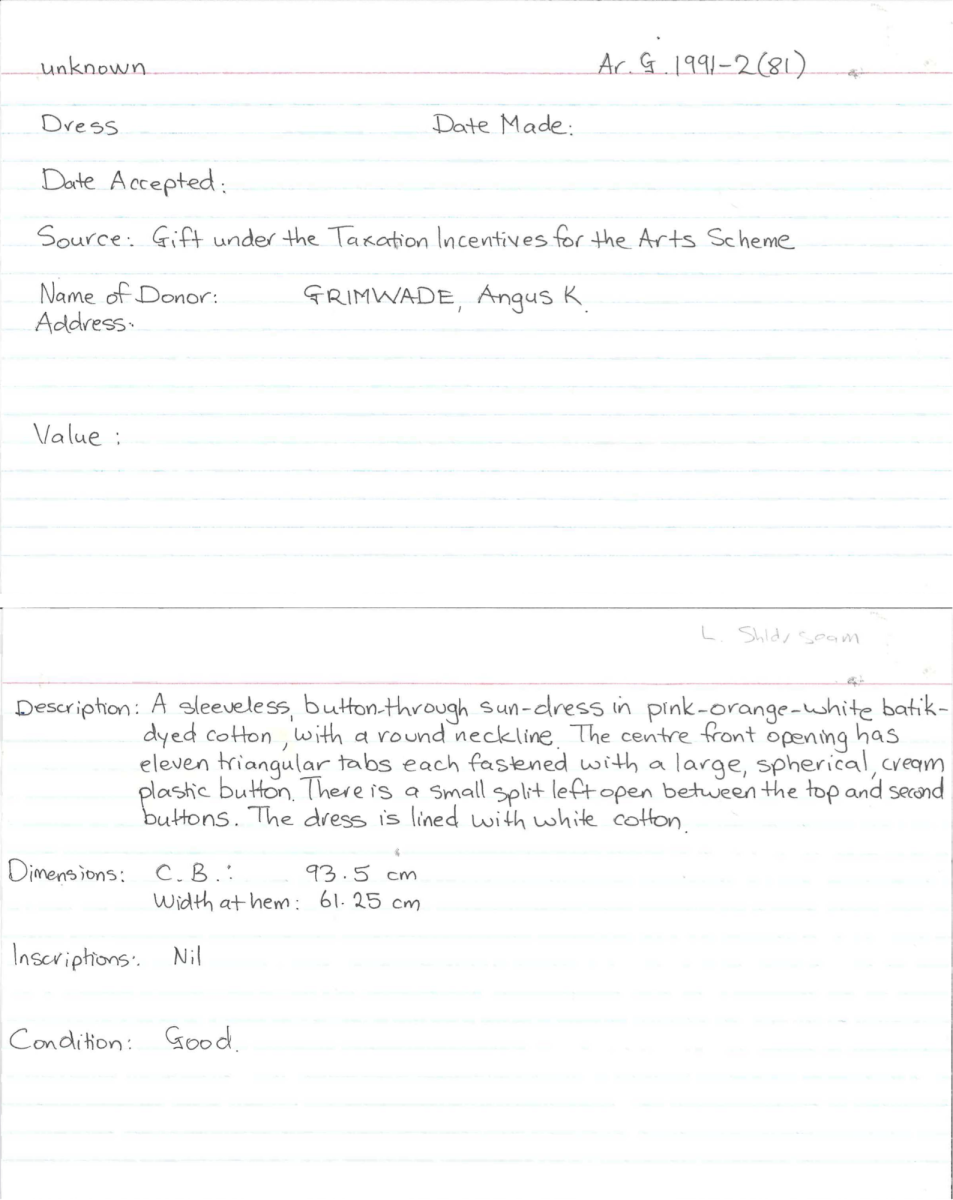 unknown Ar. G. 1991-2(81)
Dress Date Made:
Date Accepted:
Source: Gift under the Taxation Incentives for the Arts Scheme
Name of Donor: GRIMWADE, Angus K.
Address:
Value :
L. Shldr seam
Description: A sleeveless, button-through sun-dress in pink-orange-white batik-
dyed cotton, with a round neckline. The centre front opening has
eleven triangular tabs each fastened with a large, spherical, cream
plastic button. There is a small split left open between the top and second
buttons. The dress is lined with white cotton.
Dimensions: C.B.: 93.5 cm
Width at hem: 61.25 cm
Inscriptions: Nil
Condition: Good.